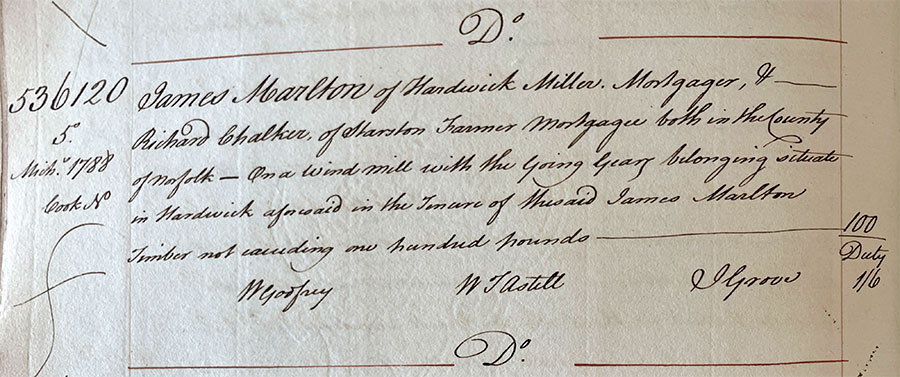 Do
536120
5.
Mich.s 1788
Cook No
James Marlton of Hardwick Miller. Mortgager, &
Richard Chalker, of Starston Farmer Mortgagee both in the County
of Norfolk — On a Wind mill with the Going Gears belonging situate
in Hardwick aforesaid in the Tenure of the said James Marlton
Timber not exceeding one hundred pounds — 100
Duty
1/6
W Godfrey W T Astell J Grove
Do